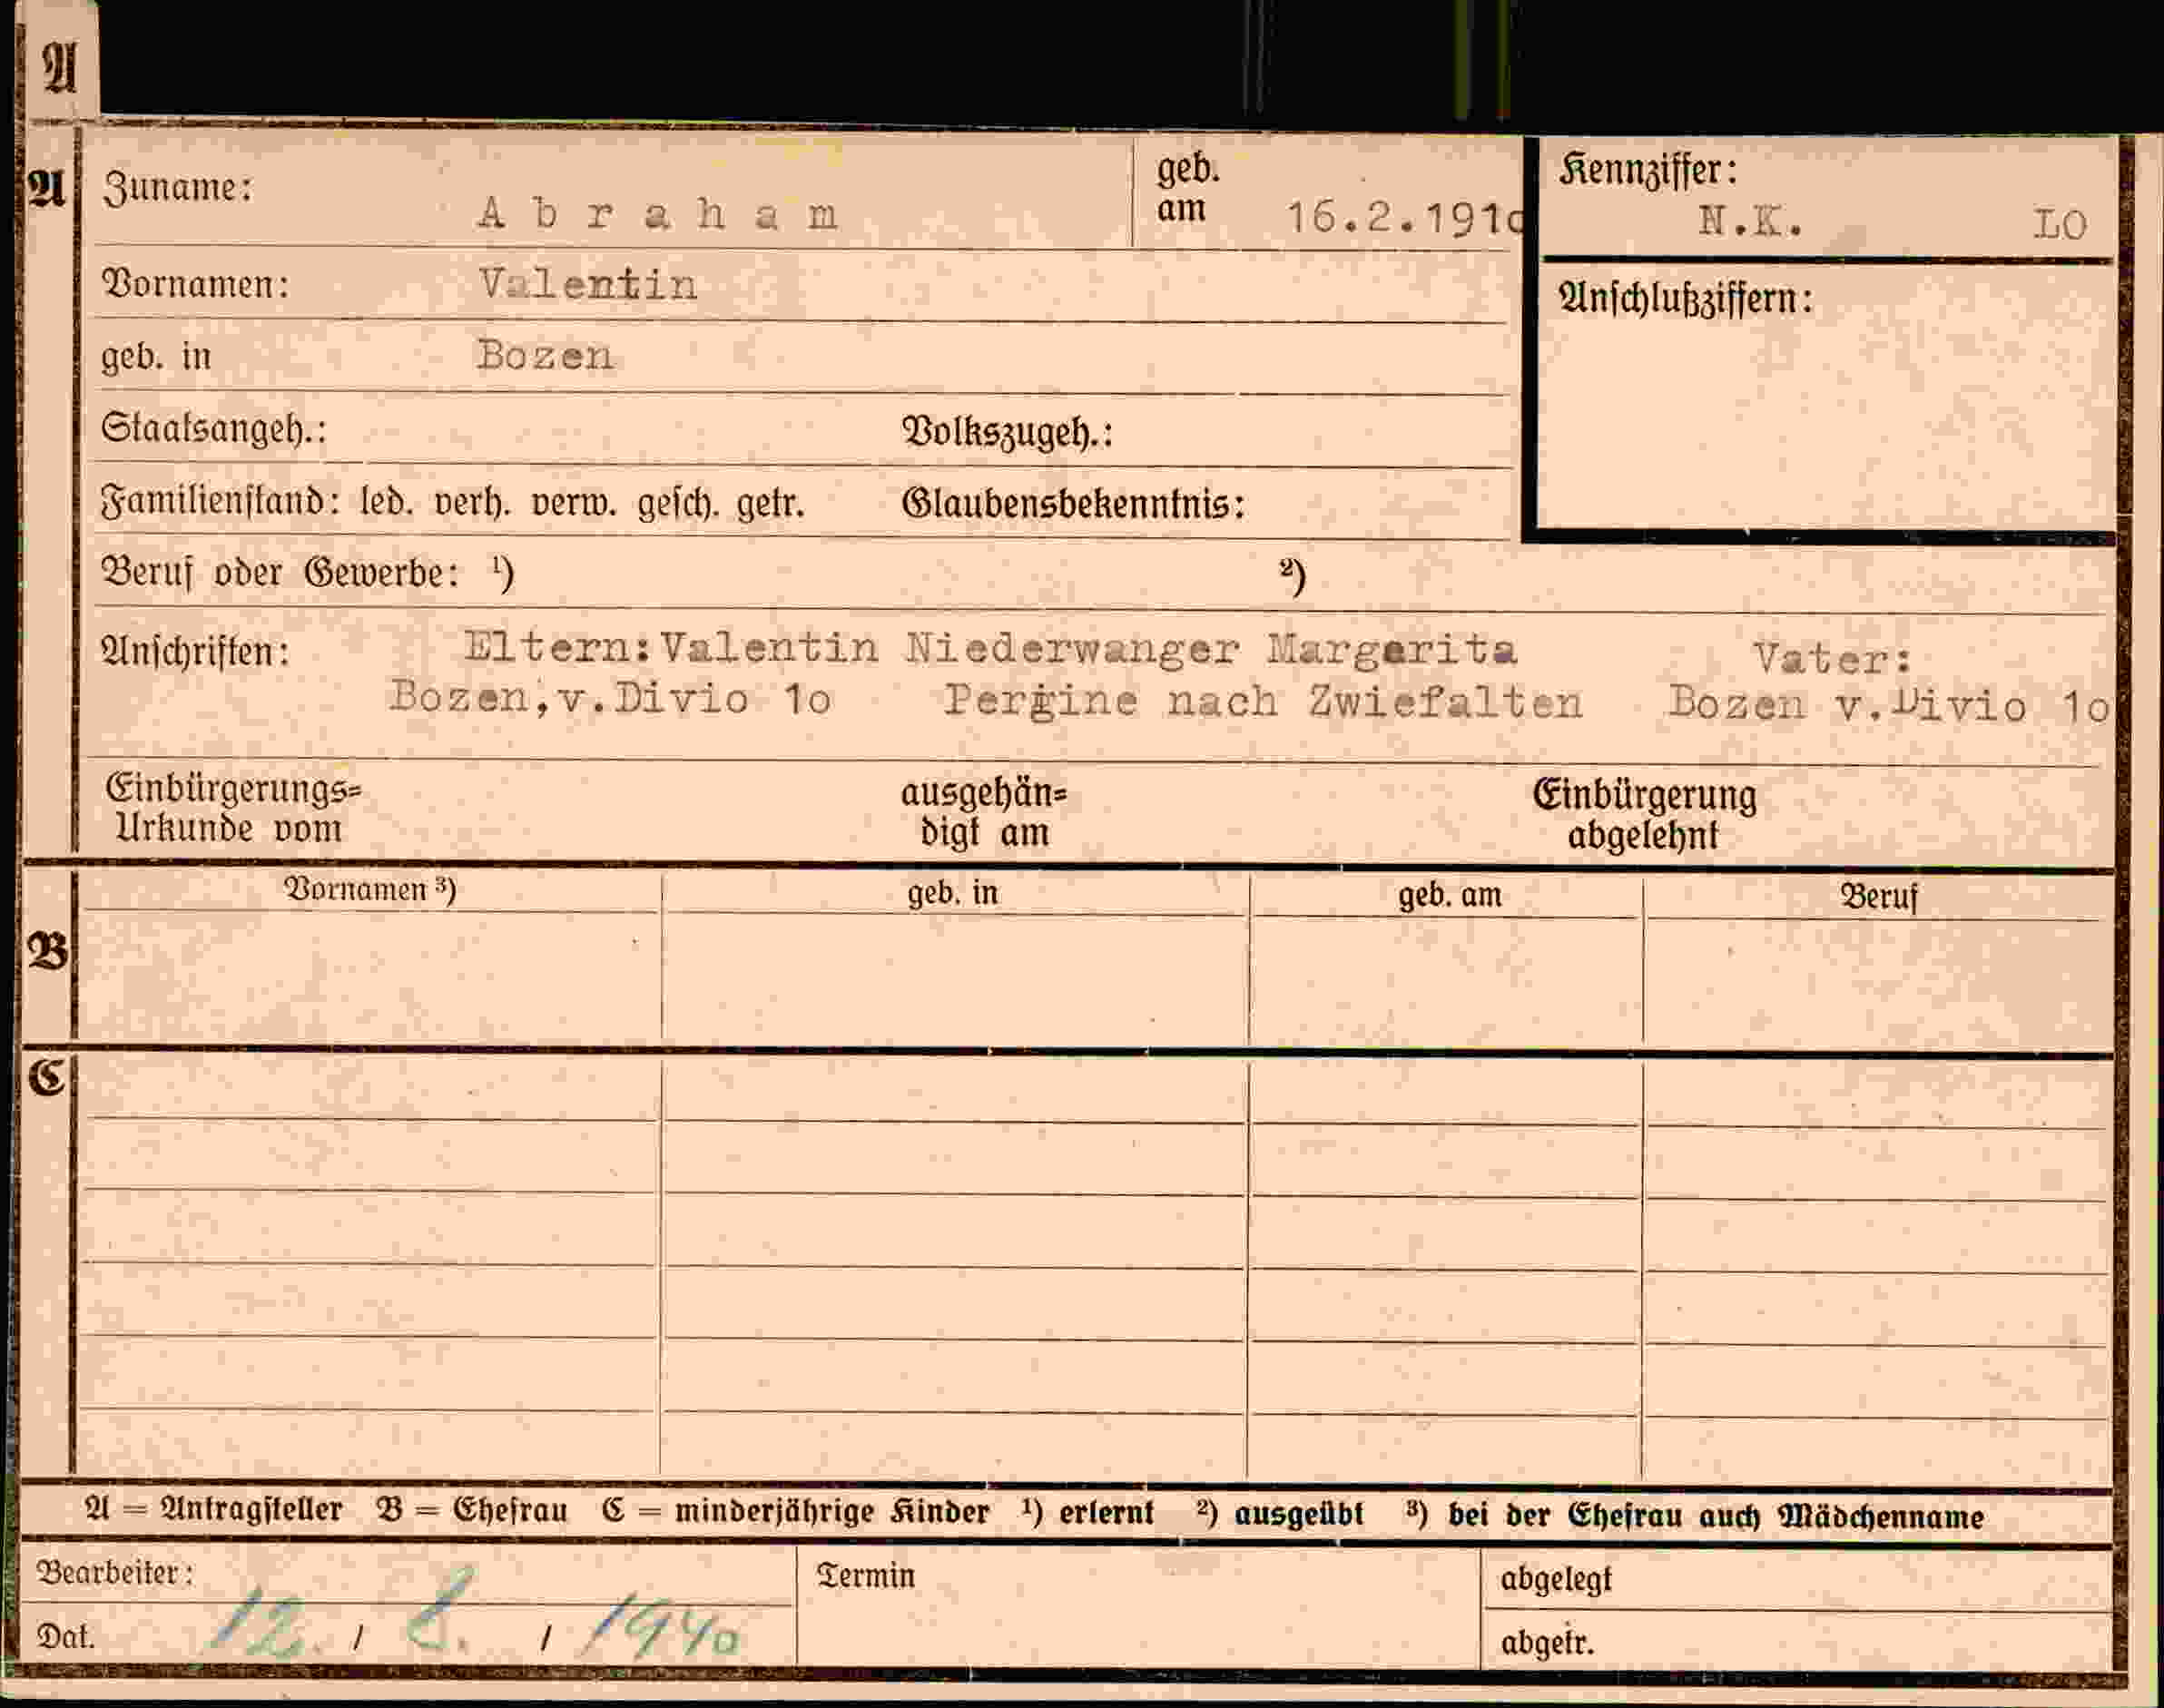 A
A Zuname: Abraham geb. am 16.2.1910 Kennziffer: N.K. LO
Vornamen: Valentin Anschlußziffern:
geb. in Bozen
Staatsangeh.: Volkszugeh.:
Familienstand: led. verh. verw. gesch. getr. Glaubensbekenntnis:
Beruf oder Gewerbe: ¹) ²)
Anschriften: Eltern:Valentin Niederwanger Margarita Vater:
Bozen,v.Divio 1o Pergine nach Zwiefalten Bozen v.Divio 1o
Einbürgerungs= ausgehän= Einbürgerung
Urkunde vom digt am abgelehnt
Vornamen ³) geb. in geb. am Beruf
B
C
A = Antragsteller B = Ehefrau C = minderjährige Kinder ¹) erlernt ²) ausgeübt ³) bei der Ehefrau auch Mädchenname
Bearbeiter: Termin abgelegt
Dat. 12. / / 1940 abgetr.